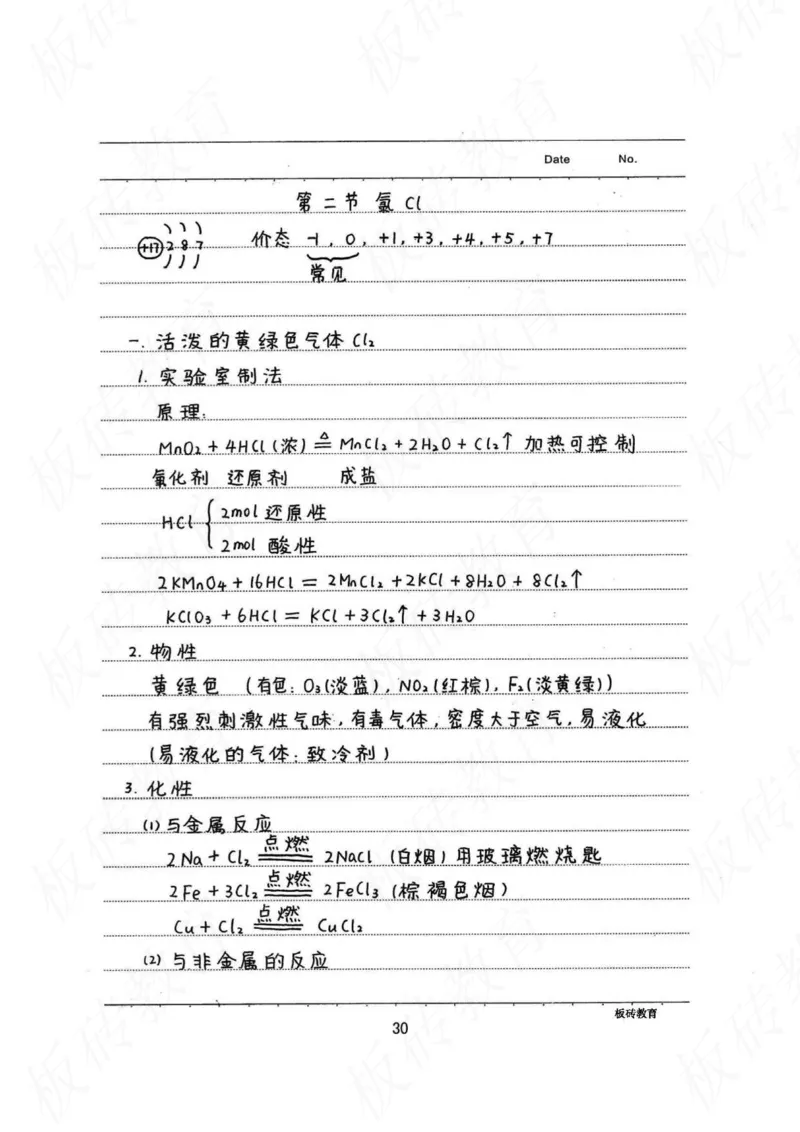 Date No.
第二节 氯 Cl
+17 2 8 7 价态 -1, 0, +1, +3, +4, +5, +7
常见
一. 活泼的黄绿色气体 Cl₂
1. 实验室制法
原理:
MnO₂ + 4HCl (浓) ≜ MnCl₂ + 2H₂O + Cl₂↑ 加热可控制
氧化剂 还原剂 成盐
HCl { 2mol 还原性
2mol 酸性
2KMnO₄ + 16HCl = 2MnCl₂ + 2KCl + 8H₂O + 8Cl₂↑
KClO₃ + 6HCl = KCl + 3Cl₂↑ + 3H₂O
2. 物性
黄绿色 (有色: O₃(淡蓝), NO₂(红棕), F₂(淡黄绿))
有强烈刺激性气味, 有毒气体, 密度大于空气, 易液化
(易液化的气体: 致冷剂)
3. 化性
(1) 与金属反应
2Na + Cl₂ 点燃 2NaCl (白烟) 用玻璃燃烧匙
2Fe + 3Cl₂ 点燃 2FeCl₃ (棕褐色烟)
Cu + Cl₂ 点燃 CuCl₂
(2) 与非金属的反应
板砖教育
30